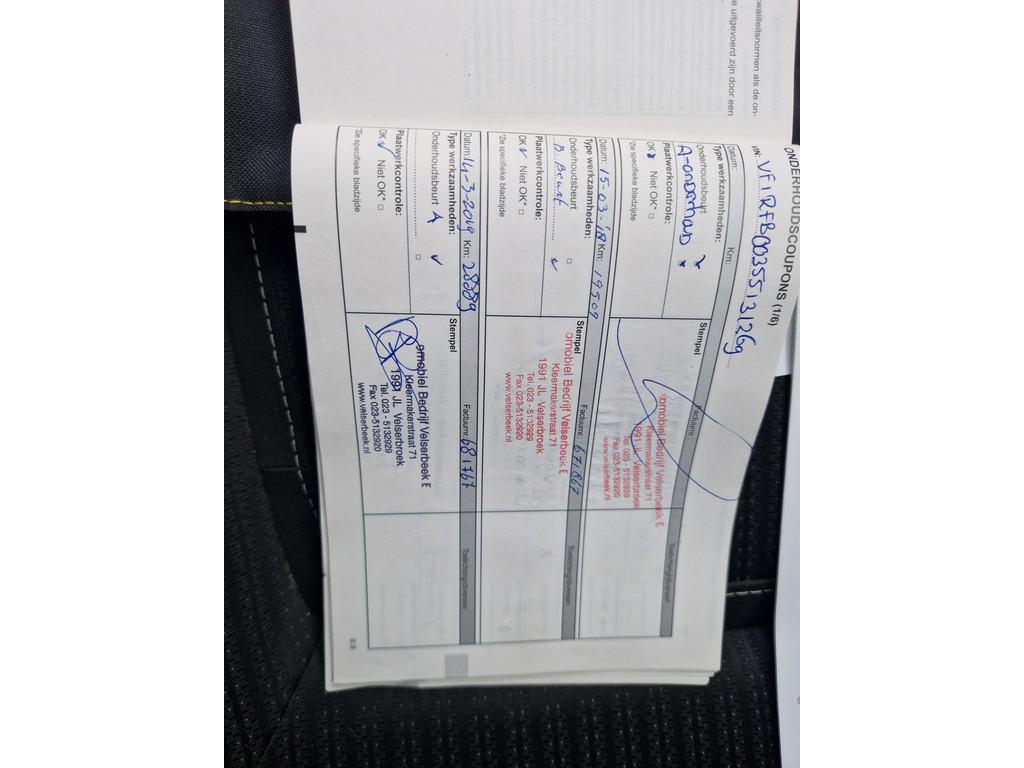 waliteitsnormen als de on-
e uitgevoerd zijn door een
ONDERHOUDSCOUPONS (1/6)
VIN: VF1RFB00355131269
Datum: Km: Factuurnr:
Type werkzaamheden: Stempel
Onderhoudsbeurt
A-onderhoud
Plaatwerkcontrole:
OK Niet OK* □
*Zie specifieke bladzijde
omobiel Bedrijf Velserbeek E
Kleermakerstraat 71
1991 JL Velserbroek
Tel. 023 - 5132929
Fax 023-5132920
www.velserbeek.nl
Toelichting/diversen
Datum: 15-03-'18 Km: 19509 Factuurnr: 671867
Type werkzaamheden: Stempel
Onderhoudsbeurt □
B. Beurt ✓
Plaatwerkcontrole:
OK ✓ Niet OK* □
*Zie specifieke bladzijde
omobiel Bedrijf Velserbeek E
Kleermakerstraat 71
1991 JL Velserbroek
Tel. 023 - 5132929
Fax 023-5132920
www.velserbeek.nl
Toelichting/diversen
Datum: 14-3-2019 Km: 28389 Factuurnr: 681767
Type werkzaamheden: Stempel
Onderhoudsbeurt A ✓
□
Plaatwerkcontrole:
OK ✓ Niet OK* □
*Zie specifieke bladzijde
omobiel Bedrijf Velserbeek E
Kleermakerstraat 71
1991 JL Velserbroek
Tel. 023 - 5132929
Fax 023-5132920
www.velserbeek.nl
Toelichting/diversen